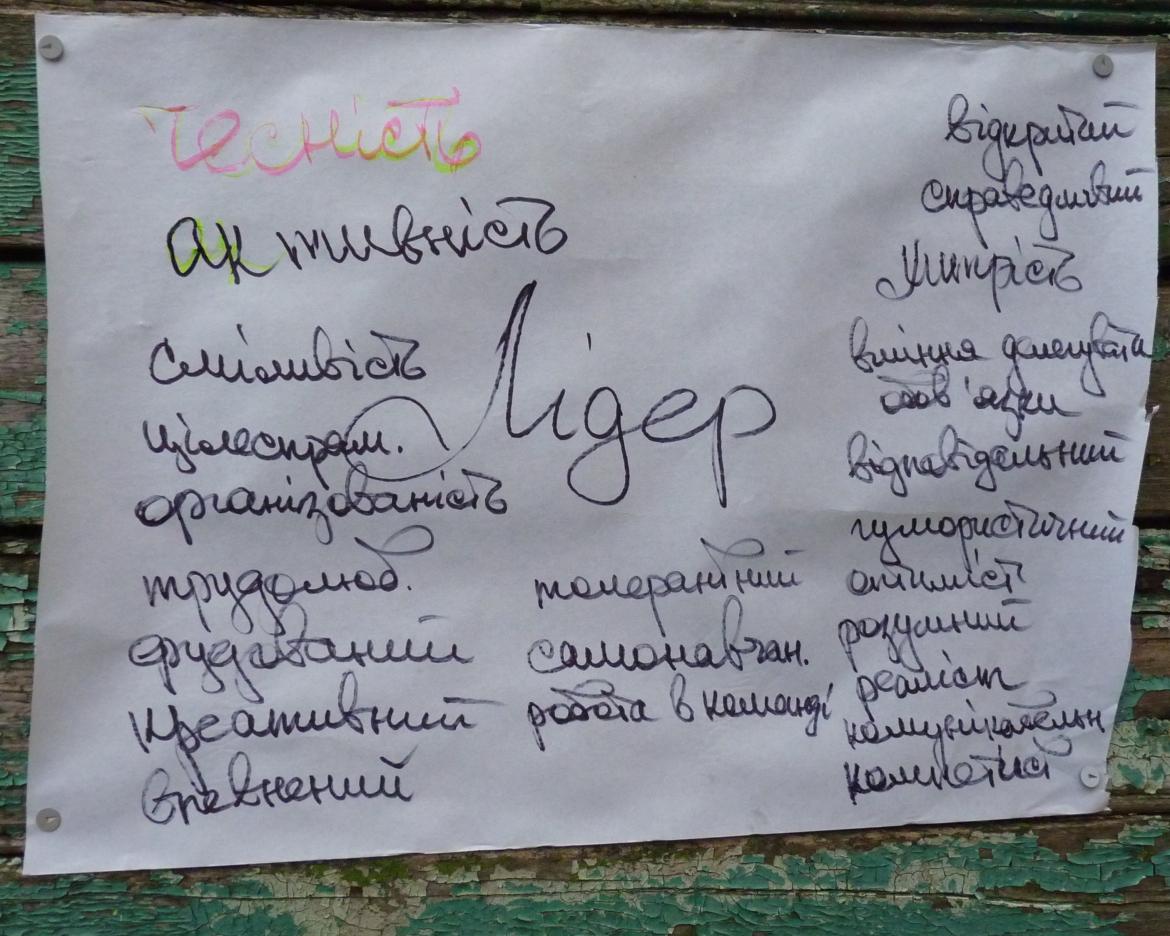 чесність
активність
Лідер
сміливість
цілеспрям.
організованість
трудолюб.
ерудований
креативний
впевнений
толерантний
самонавчан.
робота в команді
відкритий
справедливий
хитрість
вміння делегувати
обов'язки
відповідальний
гумористичний
оптиміст
розумний
реаліст
комунікабельн